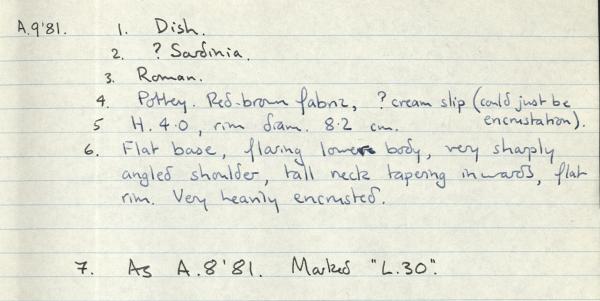 A.9'81. 1. Dish.
2. ? Sardinia.
3. Roman.
4. Pottery. Red-brown fabric, ? cream slip (could just be
encrustation).
5 H. 4.0, rim diam. 8.2 cm.
6. Flat base, flaring lower body, very sharply
angled shoulder, tall neck tapering inwards, flat
rim. Very heavily encrusted.
7. As A.8'81. Marked "L.30".